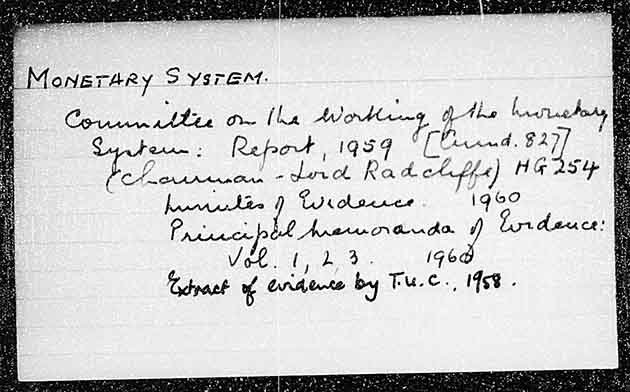 MONETARY SYSTEM.
Committee on the Working of the Monetary
System: Report, 1959 [Cmnd. 827]
(Chairman - Lord Radcliffe) HG 254
Minutes of Evidence. 1960
Principal Memoranda of Evidence:
Vol. 1, 2, 3. 1960
Extract of evidence by T.U.C., 1958.